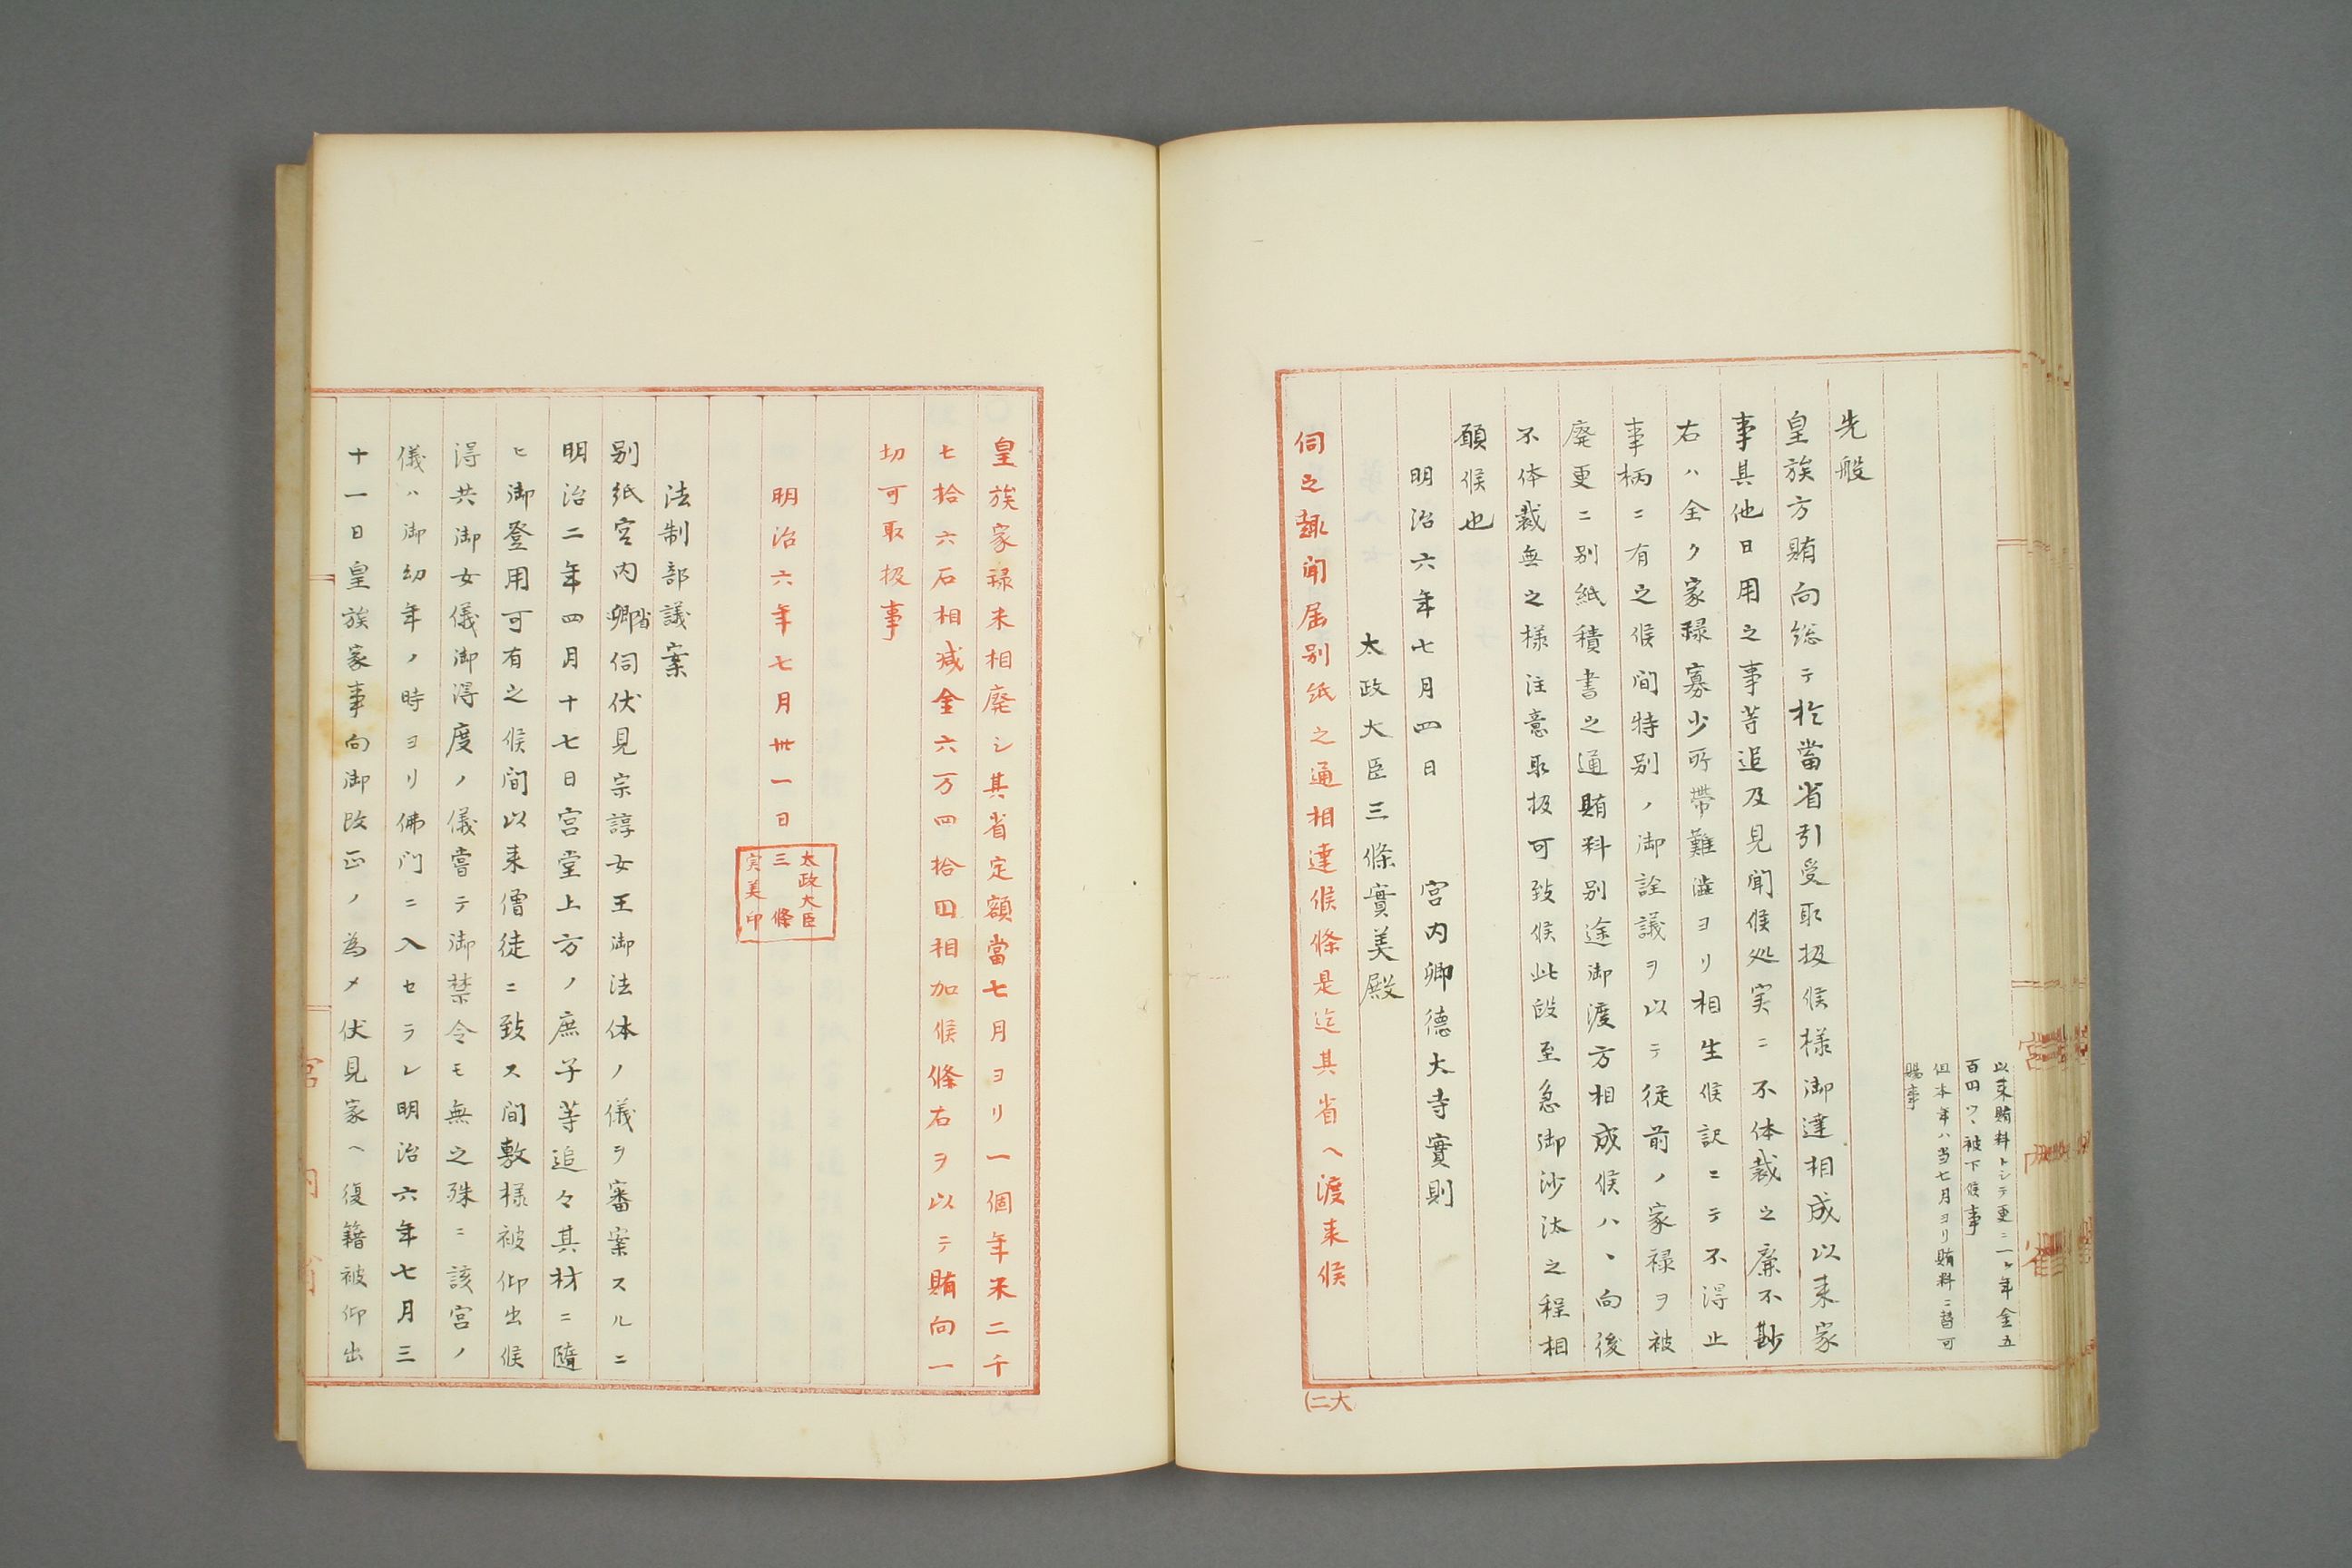 以来賄料トシテ更ニ一ヶ年金五
百円ツヽ被下候事
但本年ハ当七月ヨリ賄料ニ替可
賜事
先般
皇族方賄向総テ於當省引受取扱候様御達相成以来家
事其他日用之事等追及見聞候処実ニ不体裁之廉不尠
右ハ全ク家禄寡少所帯難澁ヨリ相生候訳ニテ不得止
事柄ニ有之候間特別ノ御詮議ヲ以テ従前ノ家禄ヲ被
廃更ニ別紙積書之通賄料別途御渡方相成候ハヽ向後
不体裁無之様注意取扱可致候此段至急御沙汰之程相
願候也
明治六年七月四日 宮内卿德大寺實則
太政大臣三條實美殿
伺之趣聞届別紙之通相達候條是迄其省ヘ渡来候
(二大
皇族家禄米相廃シ其省定額當七月ヨリ一個年米二千
七拾六石相減金六万四拾四相加候條右ヲ以テ賄向一
切可取扱事
明治六年七月卅一日
太政大臣
三條
実美印
法制部議案
別紙宮内卿省伺伏見宗諄女王御法体ノ儀ヲ審案スルニ
明治二年四月十七日宮堂上方ノ庶子等追々其材ニ隨
ヒ御登用可有之候間以来僧徒ニ致ス間敷様被仰出候
得共御女儀御得度ノ儀嘗テ御禁令モ無之殊ニ該宮ノ
儀ハ御幼年ノ時ヨリ佛門ニ入セラレ明治六年七月三
十一日皇族家事向御改正ノ為メ伏見家ヘ復籍被仰出
宮内省